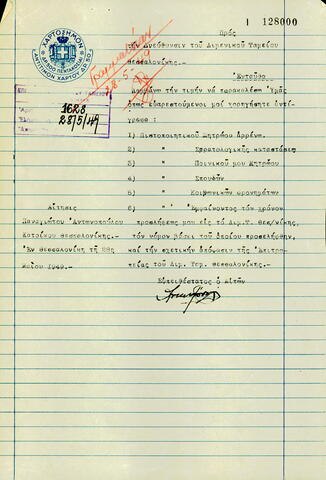 128000
ΧΑΡΤΟΣΗΜΟΝ
Πρός
τήν Διεύθυνσιν τοῦ Λιμενικοῦ Ταμείου
Θεσσαλονίκης.
Ἐνταῦθα
28-5-49
1628
28/5/49
Λαμβάνω τήν τιμήν νά παρακαλέσω Ὑμᾶς
ὅπως εὐαρεστούμενοι μοί χορηγήσητε ἀντί-
γραφα:
1) Πιστοποιητικοῦ Μητρώου ἀρρένων.
2) " Στρατολογικῆς καταστάσεως
3) " Ποινικοῦ μου Μητρώου
4) " Σπουδῶν
5) " Κοινωνικῶν φρονημάτων
6) " Ἐμφαίνοντος τόν χρόνον
Αἴτησις
Παναγιώτου Ἀντωνοπούλου προσλήψεώς μου εἰς τό Λιμ.Τ. Θεσ/νίκης,
Κατοίκου Θεσσαλονίκης. τόν νόμον βάσει τοῦ ὁποίου προσελήφθην,
Ἐν Θεσσαλονίκῃ τῇ 28ῃ καί τήν σχετικήν ἀπόφασιν τῆς Ἐπιτρο-
Μαΐου 1949. πείας τοῦ Λιμ. Ταμ. Θεσσαλονίκης.-
Εὐπειθέστατος ὁ Αἰτῶν